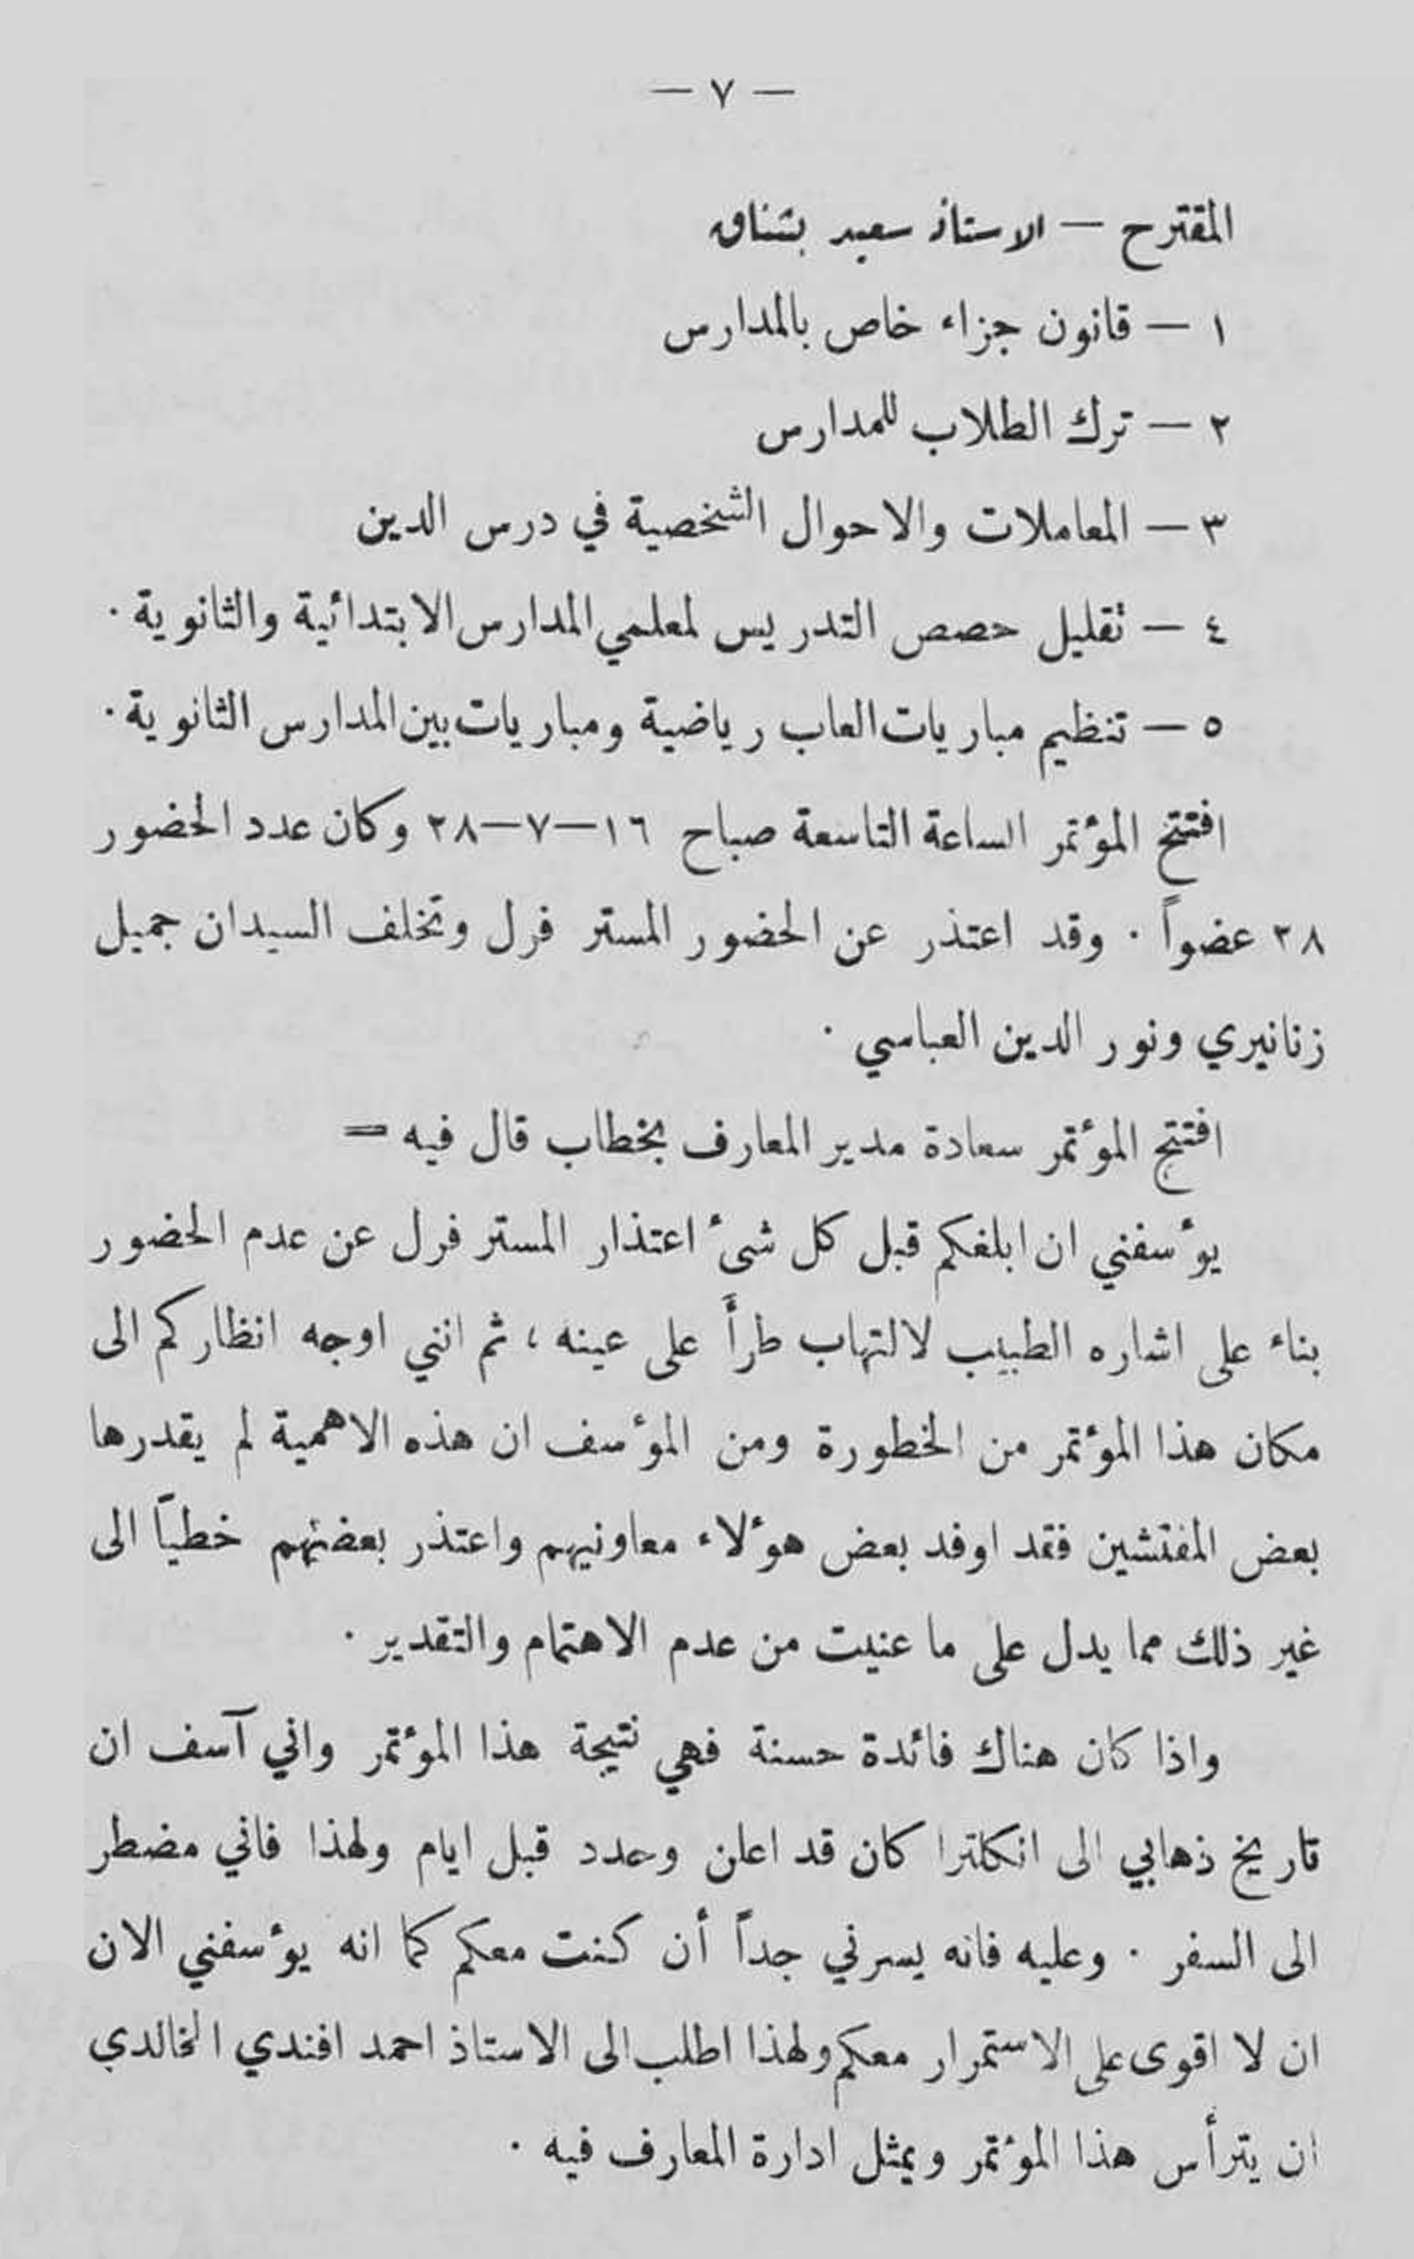 — ٧ —
المقترح — الاستاذ سعيد بشناق
١ — قانون جزاء خاص بالمدارس
٢ — ترك الطلاب للمدارس
٣ — المعاملات والاحوال الشخصية في درس الدين
٤ — تقليل حصص التدريس لمعلمي المدارس الابتدائية والثانوية ٠
٥ — تنظيم مباريات العاب رياضية ومباريات بين المدارس الثانوية ٠
افتتح المؤتمر الساعة التاسعة صباح ١٦—٧—٢٨ وكان عدد الحضور
٢٨ عضواً ٠ وقد اعتذر عن الحضور المستر فرل وتخلف السيدان جميل
زنانيري ونور الدين العباسي ٠
افتتح المؤتمر سعادة مدير المعارف بخطاب قال فيه =
يؤسفني ان ابلغكم قبل كل شئ اعتذار المستر فرل عن عدم الحضور
بناء على اشاره الطبيب لالتهاب طرأَ على عينه ، ثم انني اوجه انظاركم الى
مكان هذا المؤتمر من الخطورة ومن المؤسف ان هذه الاهمية لم يقدرها
بعض المفتشين فقد اوفد بعض هؤلاء معاونيهم واعتذر بعضهم خطياً الى
غير ذلك مما يدل على ما عنيت من عدم الاهتمام والتقدير ٠
واذا كان هناك فائدة حسنة فهي نتيجة هذا المؤتمر واني آسف ان
تاريخ ذهابي الى انكلترا كان قد اعلن وحدد قبل ايام ولهذا فاني مضطر
الى السفر ٠ وعليه فانه يسرني جداً أن كنت معكم كما انه يؤسفني الان
ان لا اقوى على الاستمرار معكم ولهذا اطلب الى الاستاذ احمد افندي الخالدي
ان يترأس هذا المؤتمر ويمثل ادارة المعارف فيه ٠